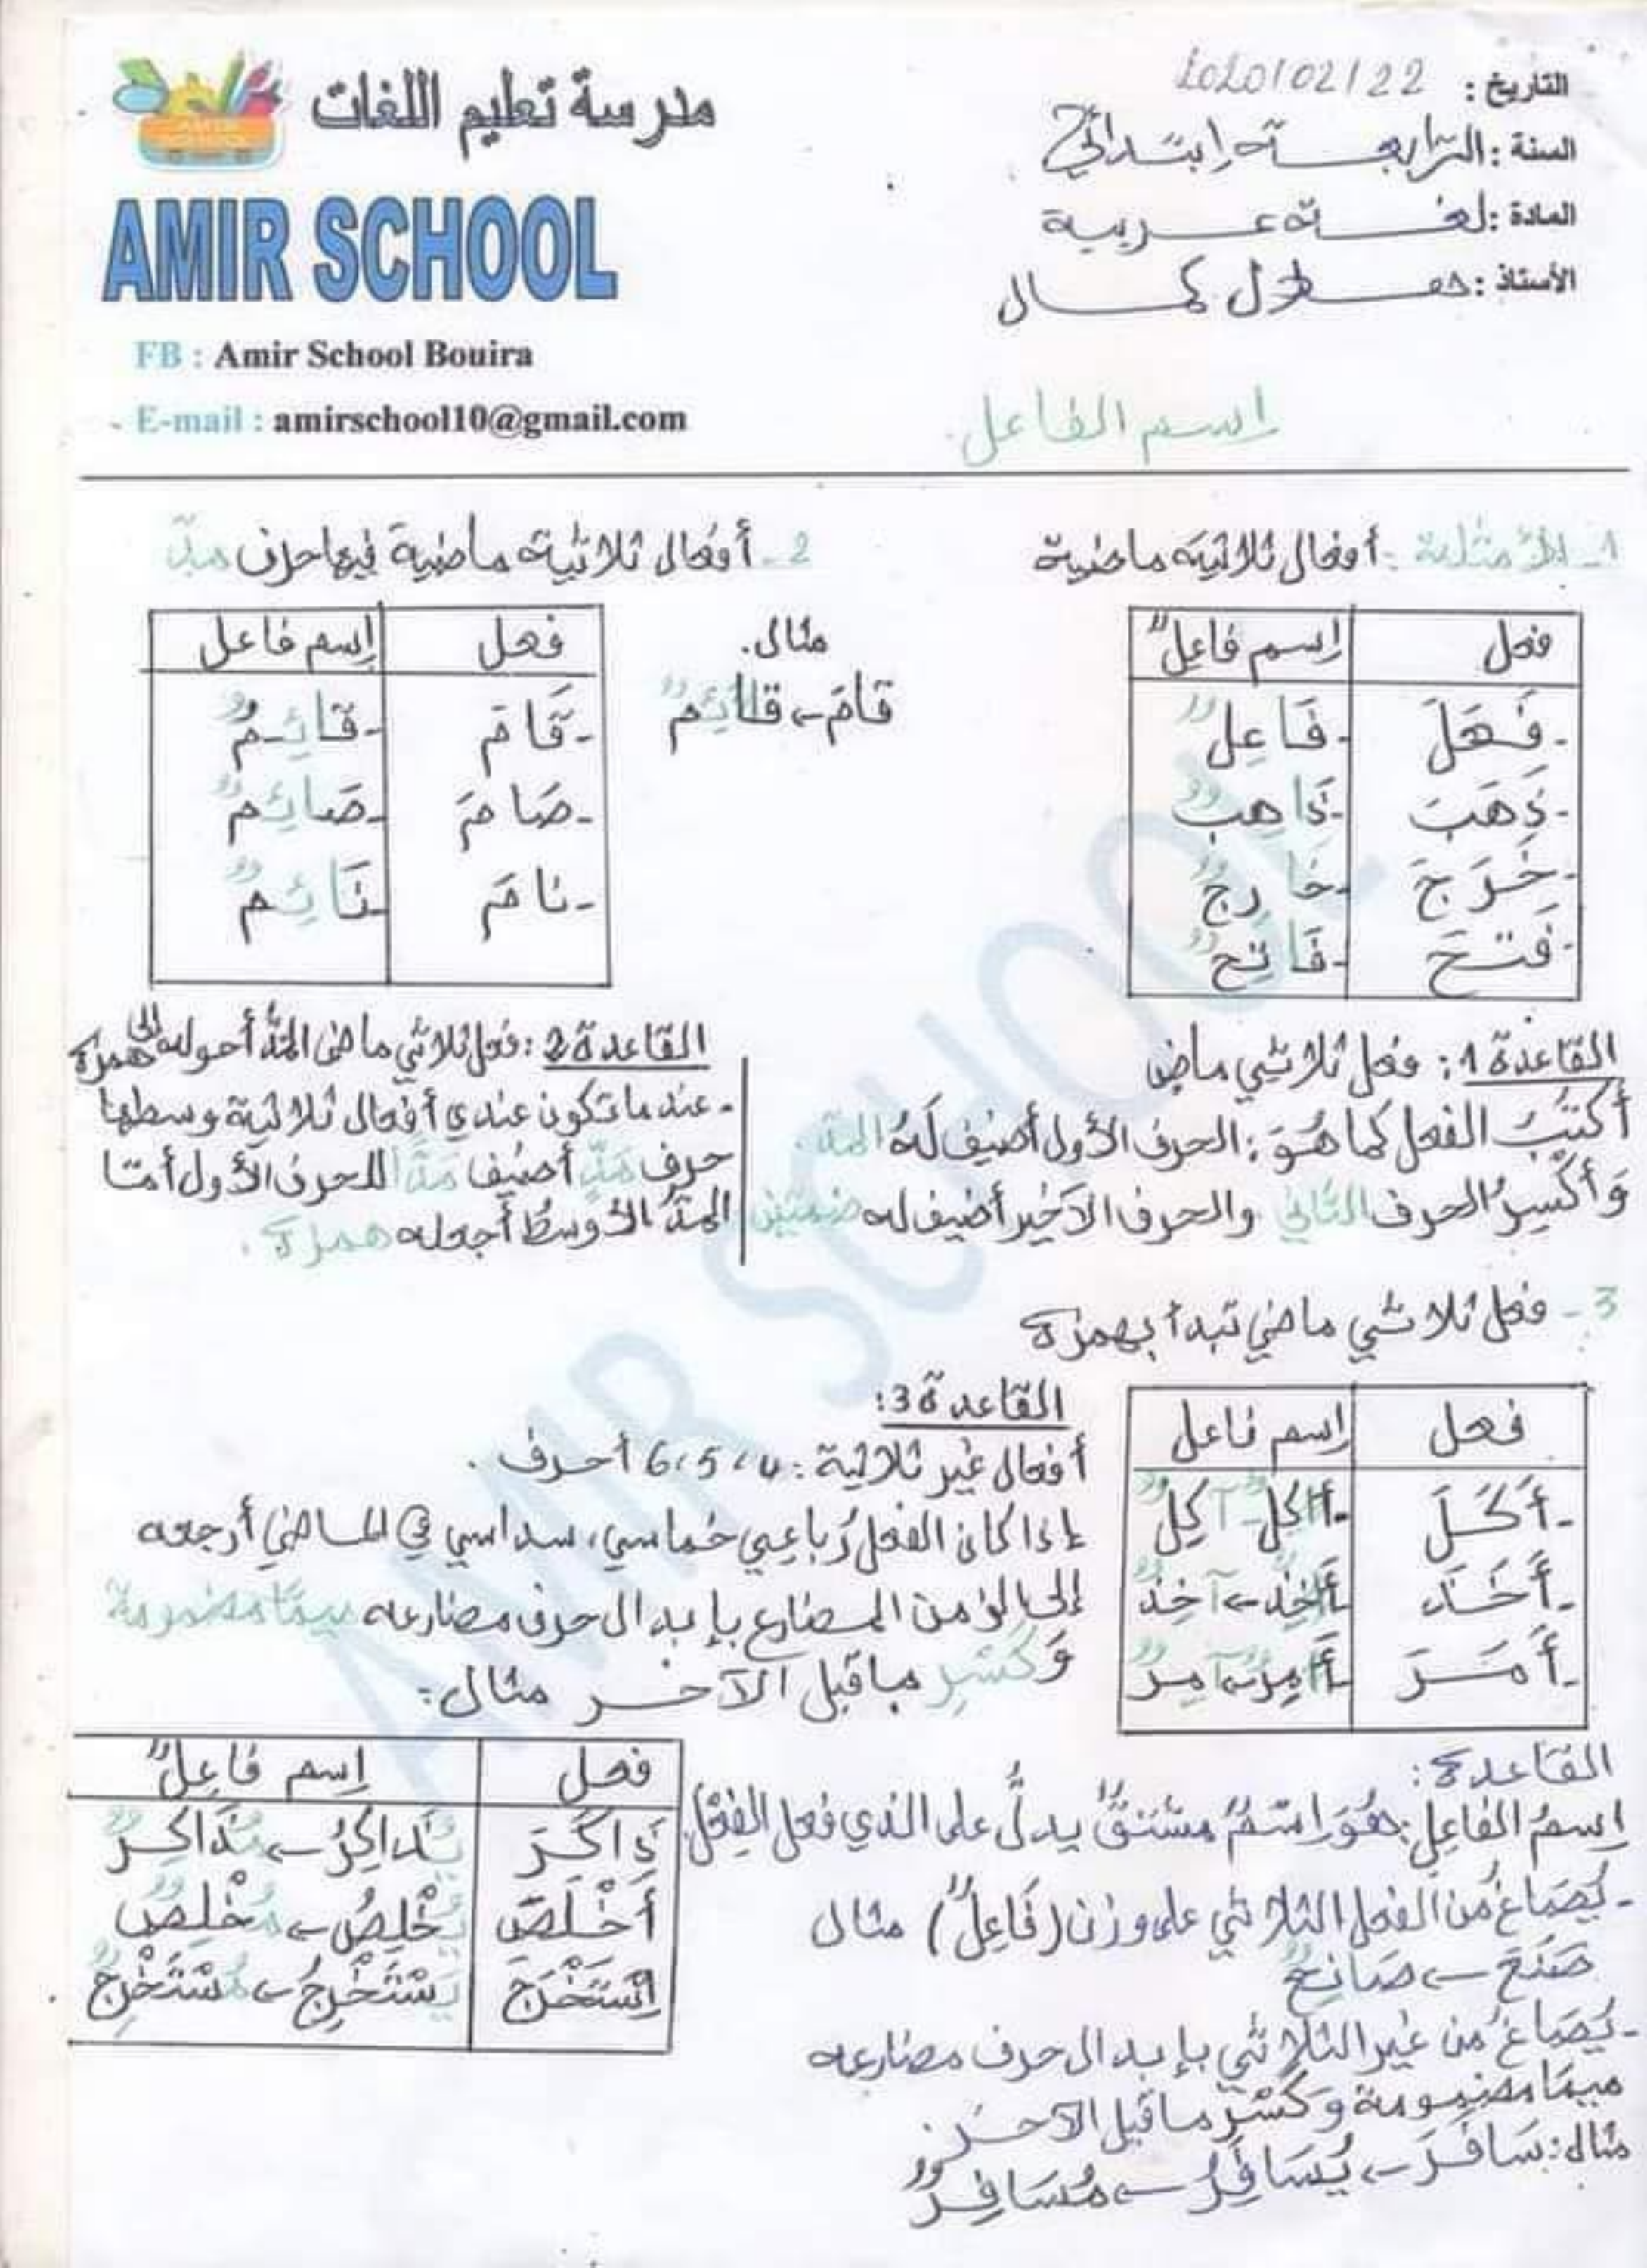 مدرسة تعليم اللغات
AMIR SCHOOL
FB : Amir School Bouira
E-mail : amirschool10@gmail.com
التاريخ : 2020/02/22
السنة : الرّابعة إبتدائي
المادة : لغة عربية
الأستاذ : كمال
إسم الفاعل
1- الأمثلة : أفعال ثلاثية ماضية
فعل | إسم فاعِلٌ
- فَعَلَ | - فَاعِلٌ
- ذَهَبَ | - ذَاهِبٌ
- خَرَجَ | - خَارِجٌ
- فَتَحَ | - فَاتِحٌ
2- أفعال ثلاثية ماضية فيها حرف مدّ
مثال.
قامَ ← قائِمٌ
فعل | إسم فاعل
- قَامَ | - قَائِمٌ
- صَامَ | - صَائِمٌ
- نامَ | - نَائِمٌ
القاعدة 1 : فعل ثلاثي ماضٍ
أكتبُ الفعل كما هُوَ : الحرف الأول أضيف لَهُ المدّ.
وَأكْسِرُ الحرف الثاني والحرف الأخير أضيف له ضمتين
القاعدة 2 : فعل ثلاثي ماضي المدُّ أحوله إلى همزة
- عندما تكون عندي أفعال ثلاثية وسطها
حرف مَدٍّ أضيف مَدًّا للحرف الأول أمّا
المدُّ الأوسطُ أجعله همزة.
3- فعل ثلاثي ماضي تبدأ بهمزة
فعل | إسم فاعل
- أَكَلَ | - أَاكِلٌ - آكِلٌ
- أَخَذَ | - أَاخِذٌ ← آخِذٌ
- أَمَرَ | - أَامِرٌ ← آمِرٌ
القاعدة 3:
أفعال غير ثلاثية : 4، 5، 6 أحرف.
إذا كان الفعل رُباعِي خُماسي، سداسي في الماضي أرجعه
إلى من المضارع بإبدال حرف مضارعه ميمًا مضمومة
وَكَسْرِ ماقبل الآخر مثال:
فعل | إسم فاعِلٌ
ذَاكَرَ | يُذَاكِرُ ← مُذَاكِرٌ
أَخْلَصَ | يُخْلِصُ ← مُخْلِصٌ
إِسْتَخْرَجَ | يَسْتَخْرِجُ ← مُسْتَخْرِجٌ
القاعدة :
إسمُ الفاعِلِ : هُوَ إِسْمٌ مشتقٌّ يدلُّ على الذي فعل الفِعْلَ.
- يُصَاغُ من الفعل الثلاثي على وزن (فَاعِلٌ) مثال
صَنَعَ ← صَانِعٌ
- يُصَاغُ من غير الثلاثي بإبدال حرف مضارعه
ميمًا مضمومة وَكَسْرِ ماقبل الآخر.
مثال : سَافَرَ ← يُسَافِرُ ← مُسَافِرٌ
AMIR SCHOOL